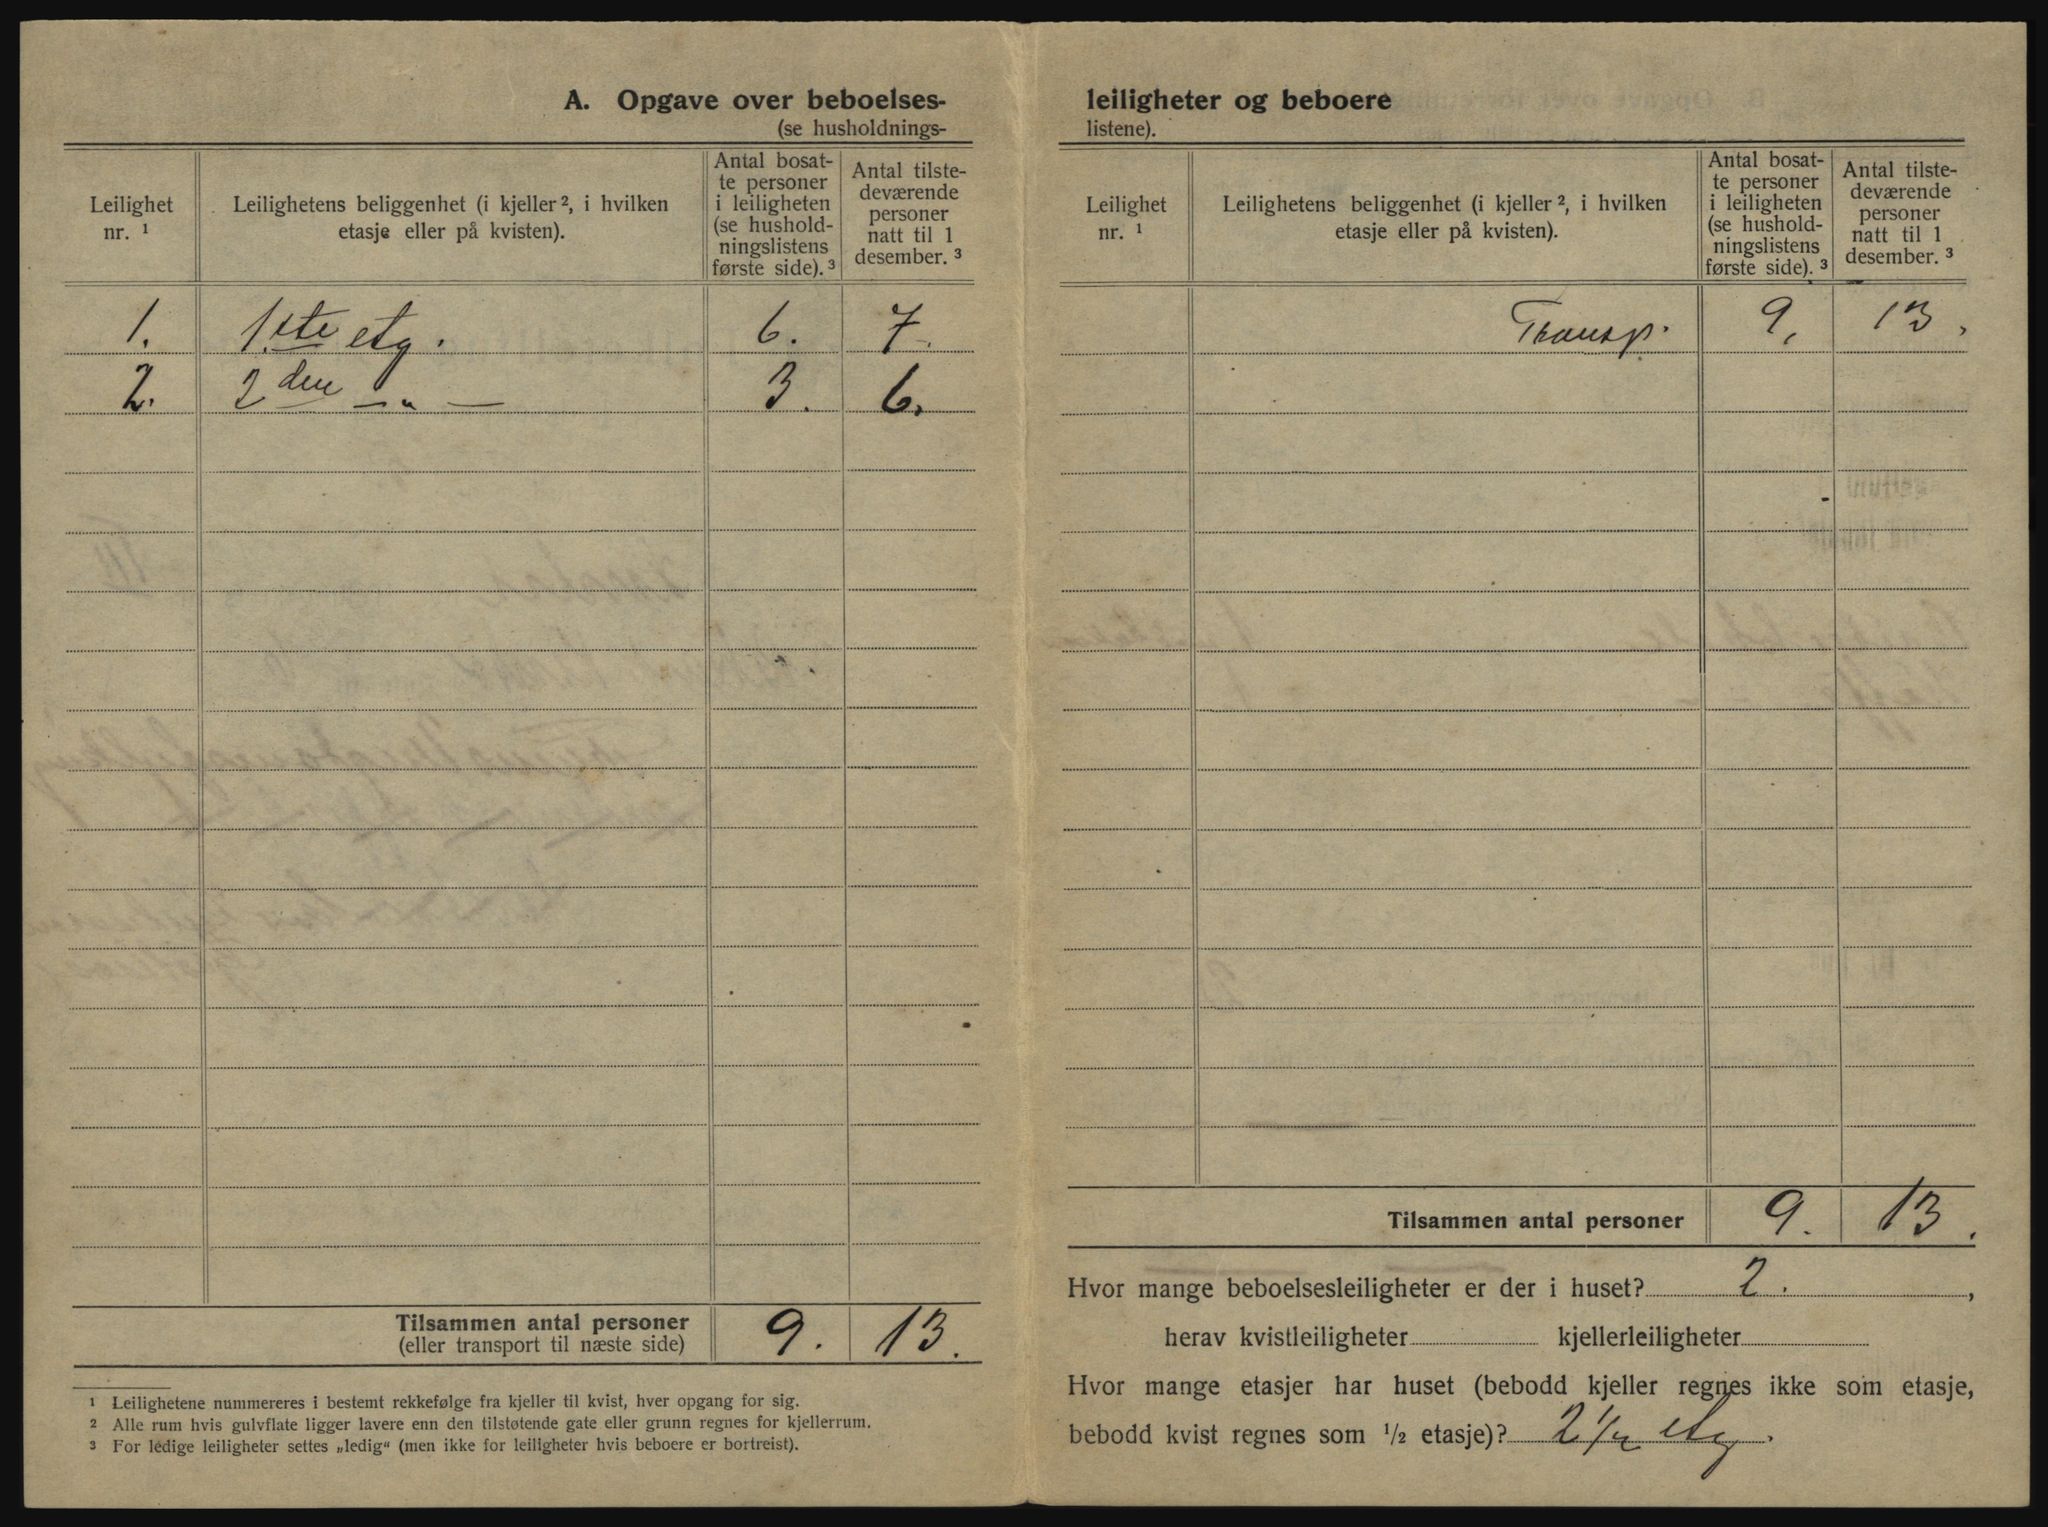 A. Opgave over beboelses-
(se husholdnings-
Leilighet
nr. ¹
Leilighetens beliggenhet (i kjeller ², i hvilken
etasje eller på kvisten).
Antal bosat-
te personer
i leiligheten
(se hushold-
ningslistens
første side). ³
Antal tilste-
deværende
personer
natt til 1
desember. ³
1. 1.ste etg. 6. 7.
2. 2den —„— 3. 6.
Tilsammen antal personer
(eller transport til næste side)
9. 13.
¹ Leilighetene nummereres i bestemt rekkefølge fra kjeller til kvist, hver opgang for sig.
² Alle rum hvis gulvflate ligger lavere enn den tilstøtende gate eller grunn regnes for kjellerrum.
³ For ledige leiligheter settes „ledig“ (men ikke for leiligheter hvis beboere er bortreist).
leiligheter og beboere
listene).
Leilighet
nr. ¹
Leilighetens beliggenhet (i kjeller ², i hvilken
etasje eller på kvisten).
Antal bosat-
te personer
i leiligheten
(se hushold-
ningslistens
første side). ³
Antal tilste-
deværende
personer
natt til 1
desember. ³
Transp. 9, 13.
Tilsammen antal personer 9. 13.
Hvor mange beboelsesleiligheter er der i huset? 2. ,
herav kvistleiligheter kjellerleiligheter
Hvor mange etasjer har huset (bebodd kjeller regnes ikke som etasje,
bebodd kvist regnes som ½ etasje)? 2 ½ etg.